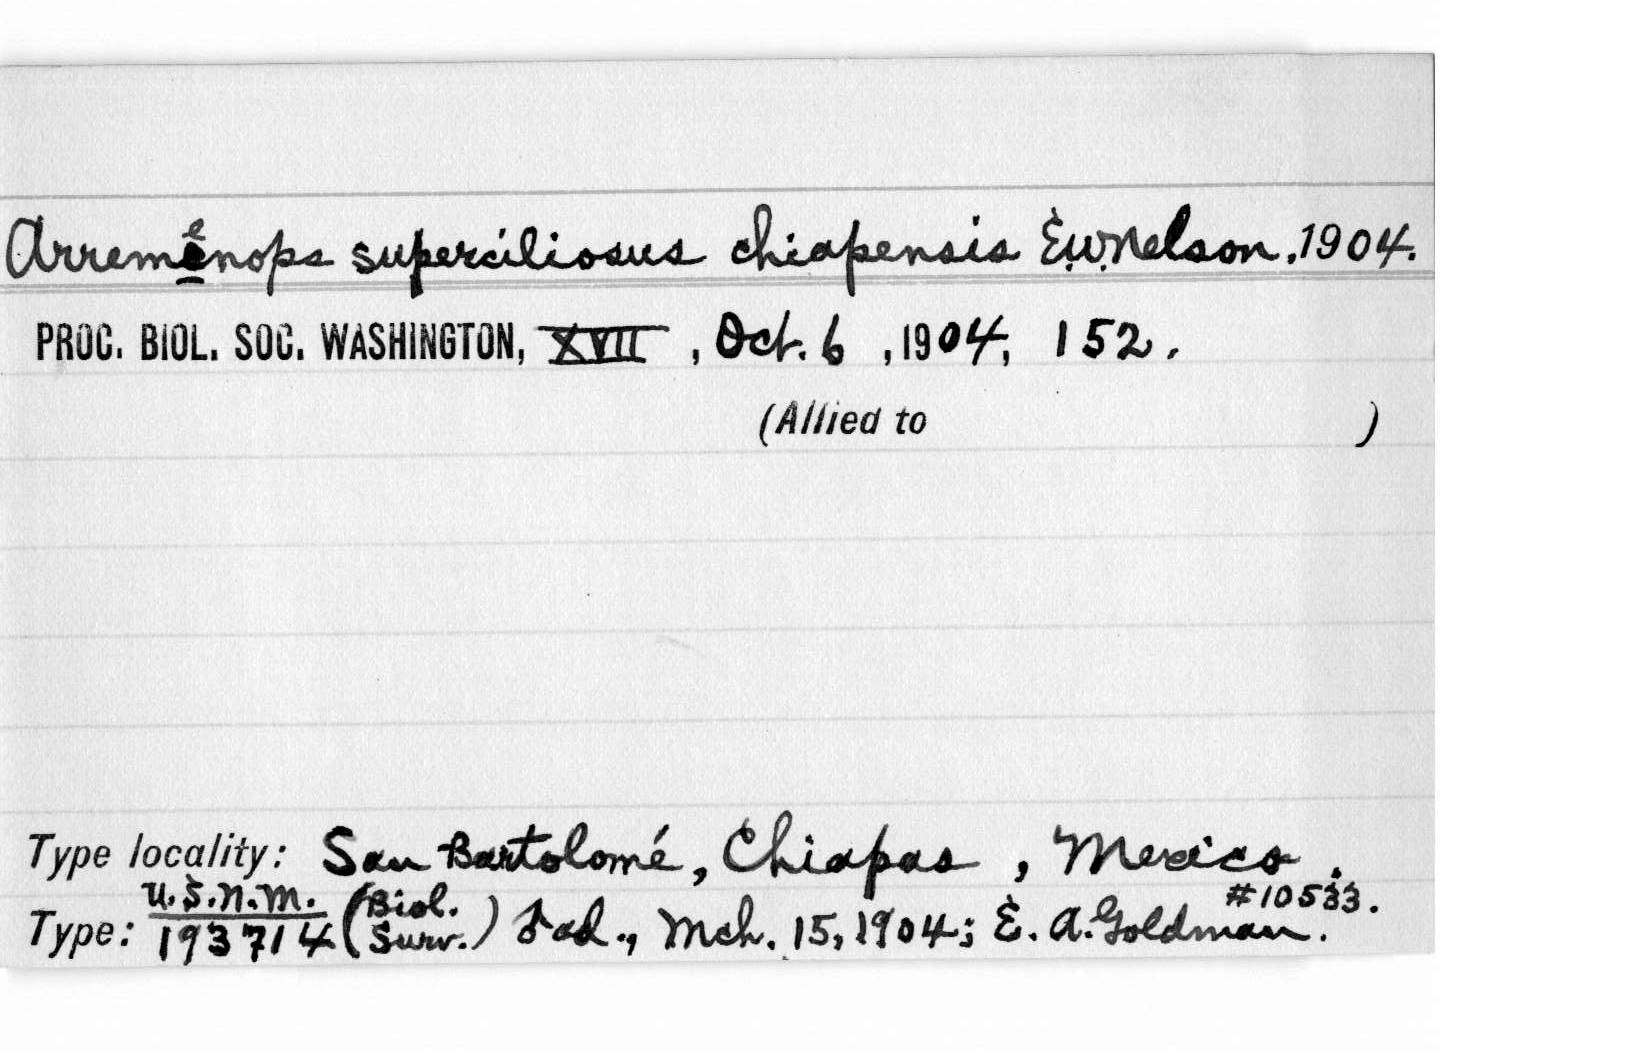 Arremenops superciliosus chiapensis E.W.Nelson.,1904.
PROC. BIOL. SOC. WASHINGTON, XVII , Oct. 6 , 1904, 152.
(Allied to )
Type locality: San Bartolomé, Chiapas , Mexico .
Type: U.S.N.M. 193714 (Biol. Surv.) ad., Mch. 15, 1904; E. A. Goldman. #10533.